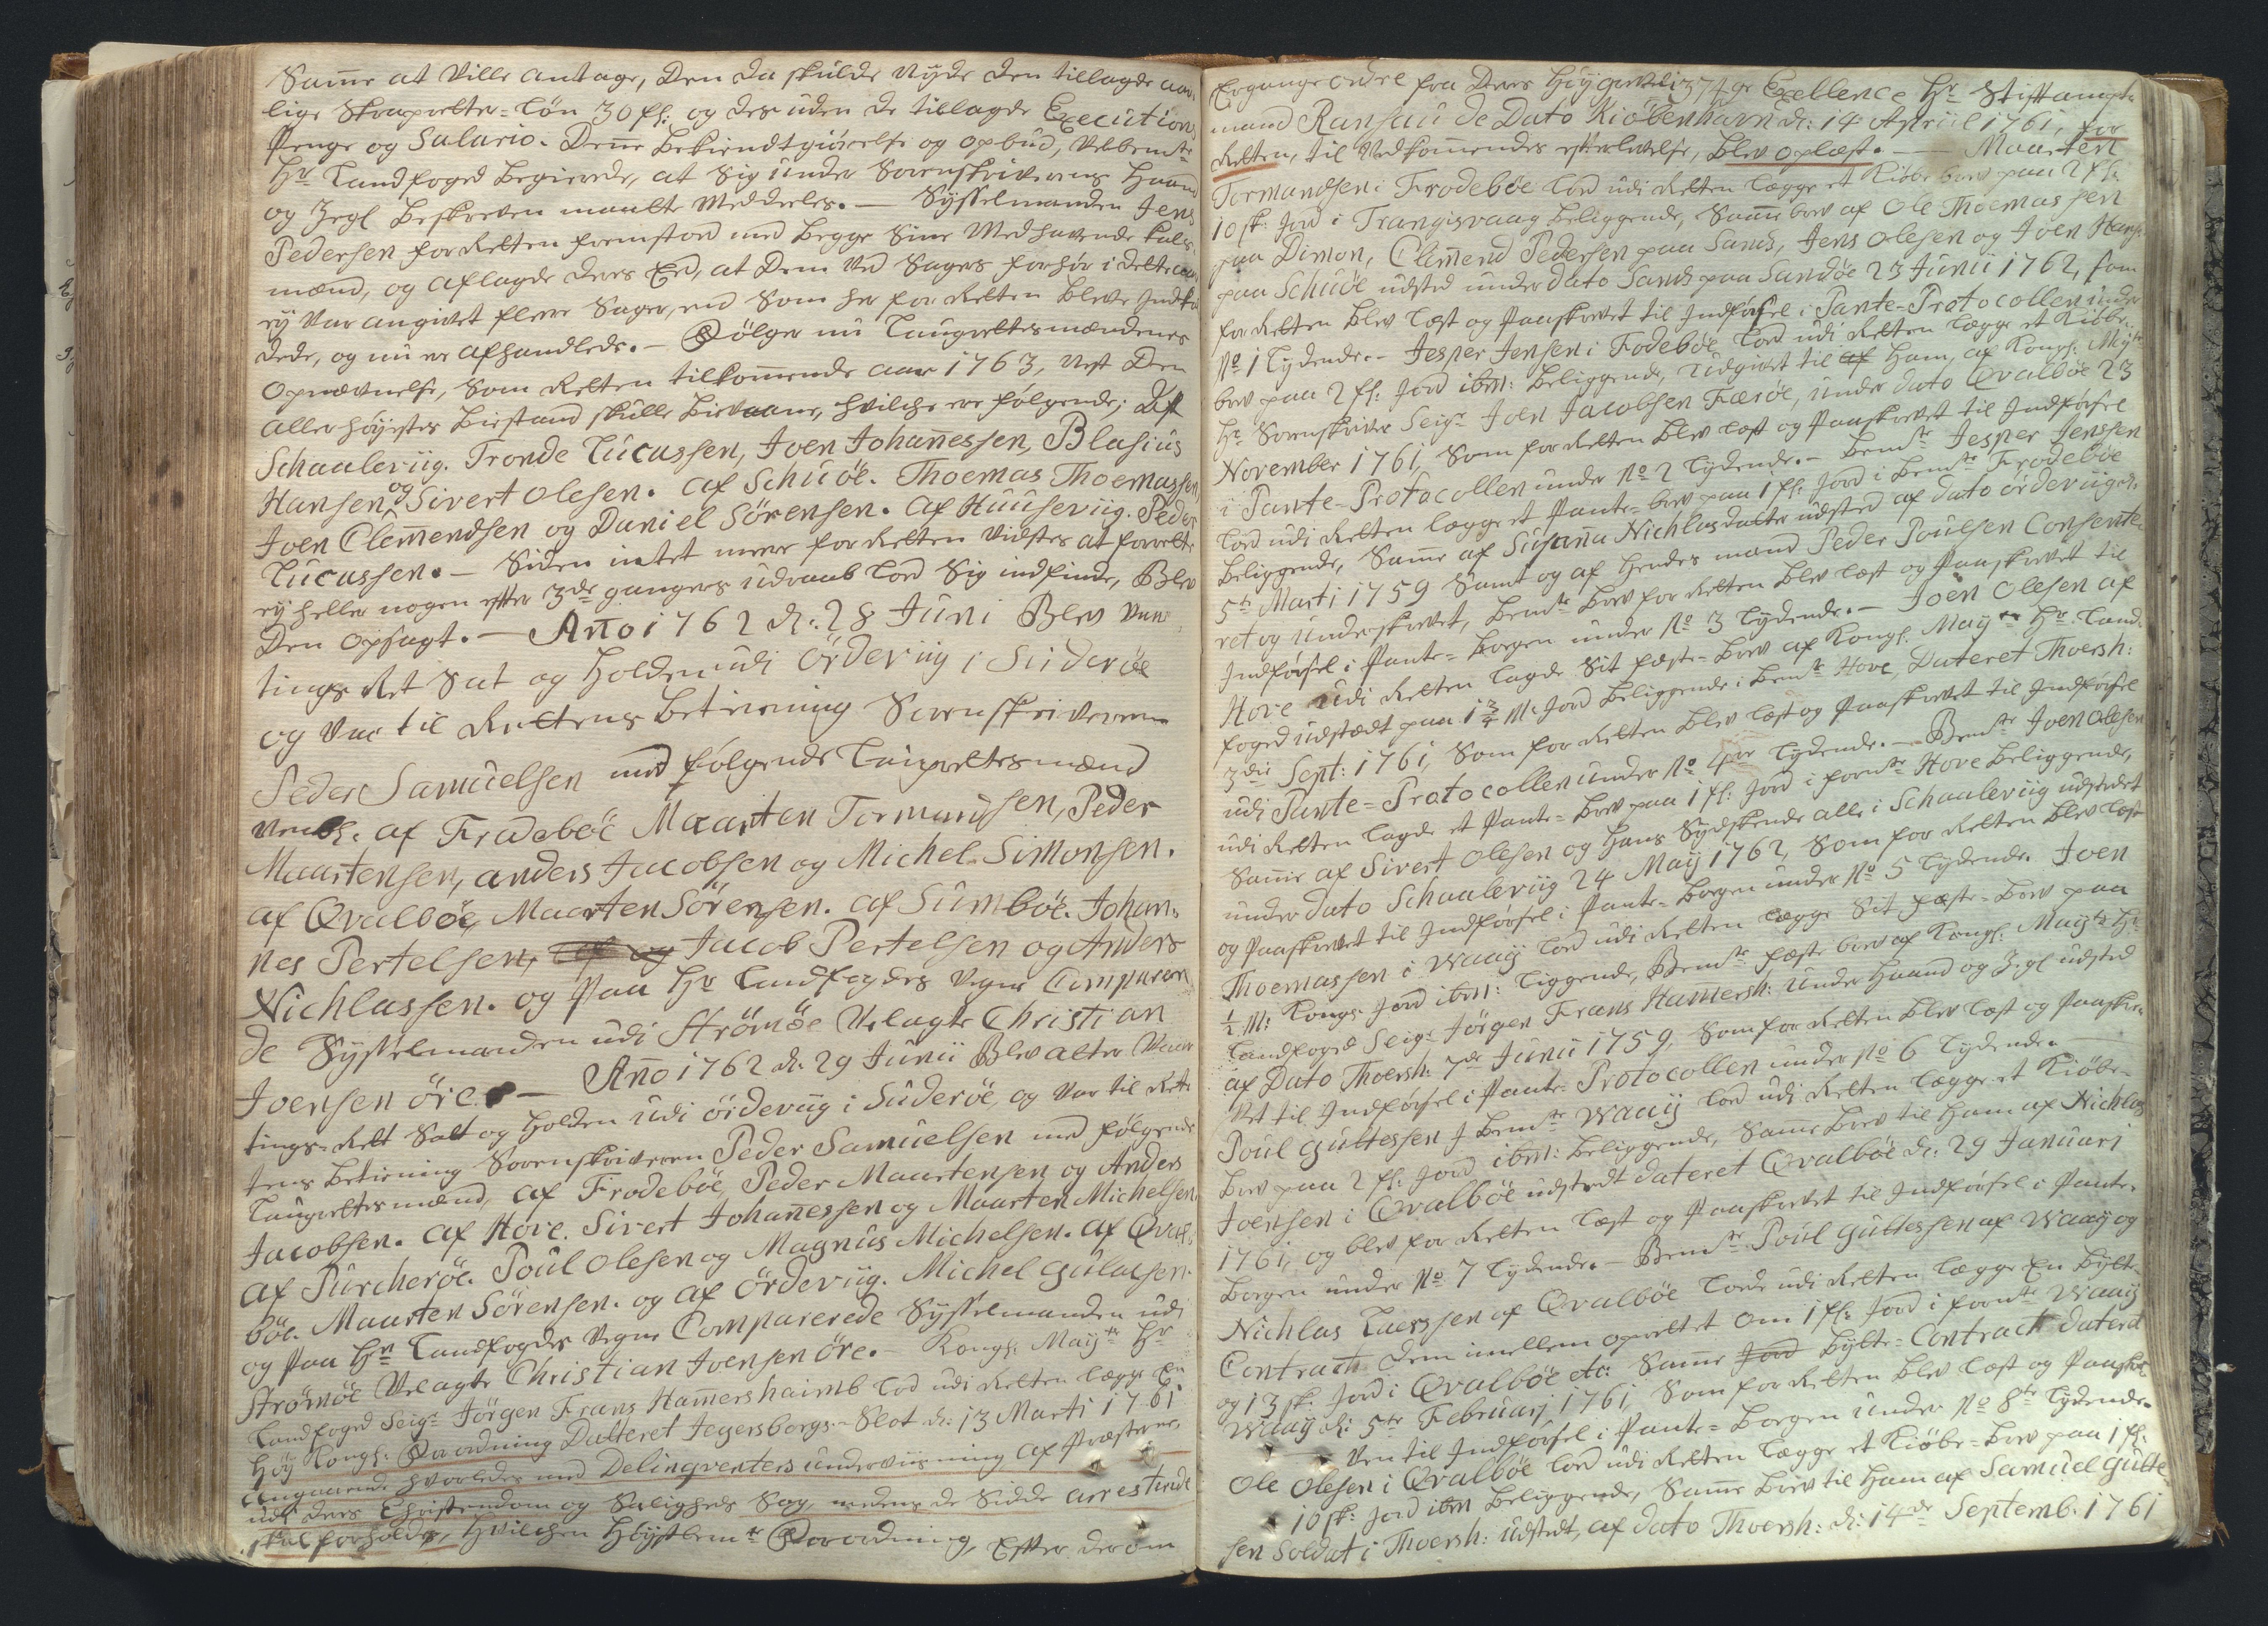 Samme at Ville antage, Den da skulde nyde den tillagde aar,
lige Skarpretter-Løn 30 fl: og des uden de tillagde Executions
Penge og Salario. Denne Bekiendtgiörelse og opbud, Velbemte
Hr Landfoged begierede, at Sig under Sorenskriverens Haand
og Zegl beskreven maatte Meddeeles. — Sysselmanden Jens
Pedersen for Retten fremstod med begge Sine Medhavende
mænd, og aflagde deres Eed, at Dem Ved Sagers forhör i dette
ej Var angivet flere Sager, end Som her for Retten bleve
dede, og nu er afhandlede. — Følger nu Laugrettesmændenes
Opnævnelse, Som Retten tilkommende aar 1763, nest Den
allerhöyestes biestand skulle bievaane, hvilche ere følgende; Af
Schaaleviig. Tronde Lucassen, Joen Johannessen, Blasius
Hansen og Sivert Olesen. af Schuöe. Thoemas Thoemassen,
Joen Clemmendsen og Daniel Sörensen. af Huuseviig. Peder
Lucassen. — Siden intet meere for Retten Vidstes at forrette
ej heller nogen efter 3de ganges udraab lod Sig indfinde, Blev
Den opsagt. — Anno 1762 d: 28 Juni Blev Vaar
tings Ret Sat og Holden udi Ördeviig i Suderöe
og Var til Rettens betiening Sorenskriveren
Peder Samuelsen med følgende Laugrettesmænd
af Frodeböe Maarten Tormandsen, Peder
Maartensen, anders Jacobsen og Michel Simonsen.
af Qvalböe, Maarten Sörensen. af Sumböe. Johan,
nes Pertelsen, af og Jacob Pertelsen og Anders
Nichlassen. og Paa Hr Landfogdes Vegne Comparere
de Sysselmanden udi Strömöe Velagte Christian
Joensen öre. — Anno 1762 d: 29 Junii Blev atter Vaar
tings-Rett Satt og Holden udi ördeviig i Suderöe, og Var til Ret
tens betiening Sorenskriveren Peder Samuelsen med følgende
Laugrettesmænd, af Frodeböe, Peder Maartensen og Anders
Jacobsen. af Hove. Sivert Johannessen og Maarten Michelsen
af Purcheröe. Poul Olesen og Magnus Michelsen. af Qval,
böe. Maarten Sörensen. og af ördeviig. Michel Gulaesen.
og Paa Hrr Landfogdes Vegne Comparerede Sysselmanden udi
Strömöe Velagte Christian Joensen öre. — Kongl: Mayts Hr
Landfoged Seigr Jörgen Frans Hammershaimb lod udi Retten legge En
Höy Kongl: Forordning Datteret Jegersborgs-Slot d: 13 Marti 1761
Angaaende hvorledes med Delinqventers underviisning af Præsterne,
udi deres Christendom og Saligheds Sag, medens de Sidde arresterede
skal forholdes, Hvilchen Höystbemte Forordning, Efter derom
Ergangne ordre fra Deres Höygrevelige Excellence Hr Stiftampt-
374
mand Ransau de Dato Kiöbenhavn d: 14 Apriil 1761, for
Retten, til Vedkommendes efterlevelse, blev oplæst. — Maarten
Tormandsen i Frodeböe lod udi Retten lægge et Kiöbe brev paa 2 fl:
10 sk: Jord i Trangisvaag beliggende, Samme brev af Ole Thoemassen
paa Dimon, Clemmend Pedersen paa Sands, Jens Olesen og Joen Hans
paa Schuöe udsted under dato Sands paa Sandöe 23 Junii 1762, som
for Retten blev læst og Paaskrevet til Indførsel i Pante-Protocollen under
No 1 Lydende. — Jesper Jensen i Fodeböe lod udi Retten lægge et Kiöbe
brev paa 2 fl: Jord ibm: beliggende, Udgivet til af Ham, af Kongl: Myts
Hr Sorenskriver Seigr Joen Jacobsen Færöe, under dato Qvalböe 23
November 1761, Som for Retten blev læst og Paaskrevet til Indførsel
i Pante-Protocollen under No 2 Lydende. — bemte Jesper Jenssen
lod udi Retten lægge et Pante-brev paa 1 fl: Jord i bemte Frodeböe
beliggende, Samme af Susanna Nichlasdatter udsted af dato ördeviig d:
5te Marti 1759 Samt og af Hendes mand Peder Poulsen Consente
ret og Underskrevet, bemte brev for Retten blev læst og Paaskrevet til
Indførsel i Pante-bogen under No 3 Lydende. — Joen Olesen af
Hove udi Retten lagde Sit fæste-brev af Kongl: Mayts Hr Land
foged udstædt paa 1 3/4 M: Jord beliggende i bemte Hove, Dateret Thoersh:
3die Sept: 1761, Som for Retten blev læst og Paaskrevet til Indførsel
udi Pante-Protocollen under No 4re Lydende. — Bemte Joen Olesen
udi Retten lagde et Pante-brev paa 1 fl: Jord i foromte Hove beliggende,
Samme af Sivert Olesen og Hans Sydskende alle i Schaaleviig udstædet
under dato Schaaleviig 24 Maij 1762, Som for Retten blev læst
og Paaskrevet til Indførsel i Pante-bogen under No 5 Lydende. Joen
Thoemassen i Waaij lod udi Retten lægge Sit fæste-brev paa
1/2 M: Kongs Jord ibm: liggende, Bemte fæste brev af Kongl: Mayts Hr
Landfoged Seigr Jörgen Frans Hammersh: under Haand og Zegl udsted
af Dato Thoersh: 7de Junii 1759, Som for Retten blev læst og Paaskre
vet til Indførsel i Pante-Protocollen under No 6 Lydende. —
Poul Guttessen J bemte Waaij lod udi Retten lægge et Kiöbe-
brev paa 2 fl: Jord ibm: beliggende, Samme brev til Ham af Nichlas
Joensen i Qvalböe udstædt dateret Qvalböe d: 29 Januari
1761, og blev for Retten læst og Paaskrevet til Indførsel i Pante-
bogen under No 7 Lydende. — Bemte Poul Guttessen af Waaij og
Nichlas Laessen af Qvalböe lode udi Retten lægge En Bytte
Contract dem imellem oprettet om 1 fl: Jord i foromte Waaij
og 13 sk: Jord i Qvalböe etc: Samme Jord Bytte-Contract dateret
Waaij d: 5te Februarj 1761, Som for Retten blev læst og Paaskre
ven til Indførsel i Pante-bogen under No 8te Lydende.
Ole Olesen i Qvalböe lod udi Retten lægge et Kiöbe-brev paa 1 fl:
10 sk: Jord ibm beliggende, Samme brev til Ham af Samuel Gutte
sen Soldat i Thoersh: udstædt, af dato Thoersh: d: 14de Septemb. 1761